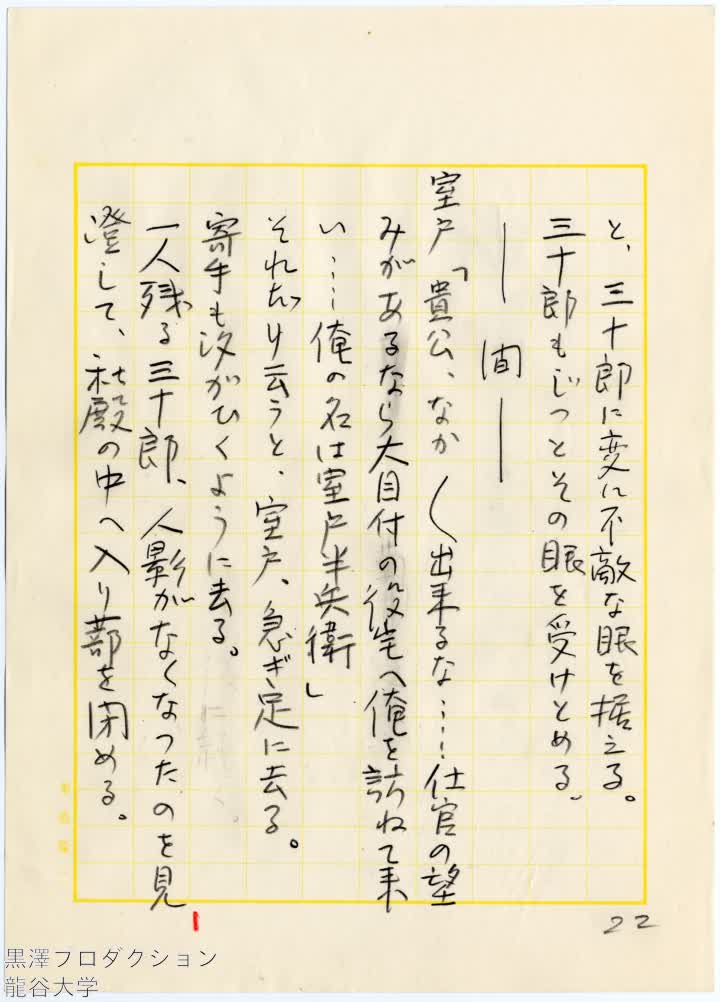 と、三十郎に変に不敵な眼を据える。
三十郎もじつとその眼を受けとめる。
――間――
室戸「貴公、なか〱出来るな……仕官の望
みがあるなら大目付の役宅へ俺を訪ねて来
い……俺の名は室戸半兵衛」
それだけ云うと、室戸、急ぎ足に去る。
寄手も汐がひくように去る。
一人残る三十郎、人影がなくなつたのを見
澄して、社殿の中へ入り蔀を閉める。
22
黒澤プロダクション
龍谷大学